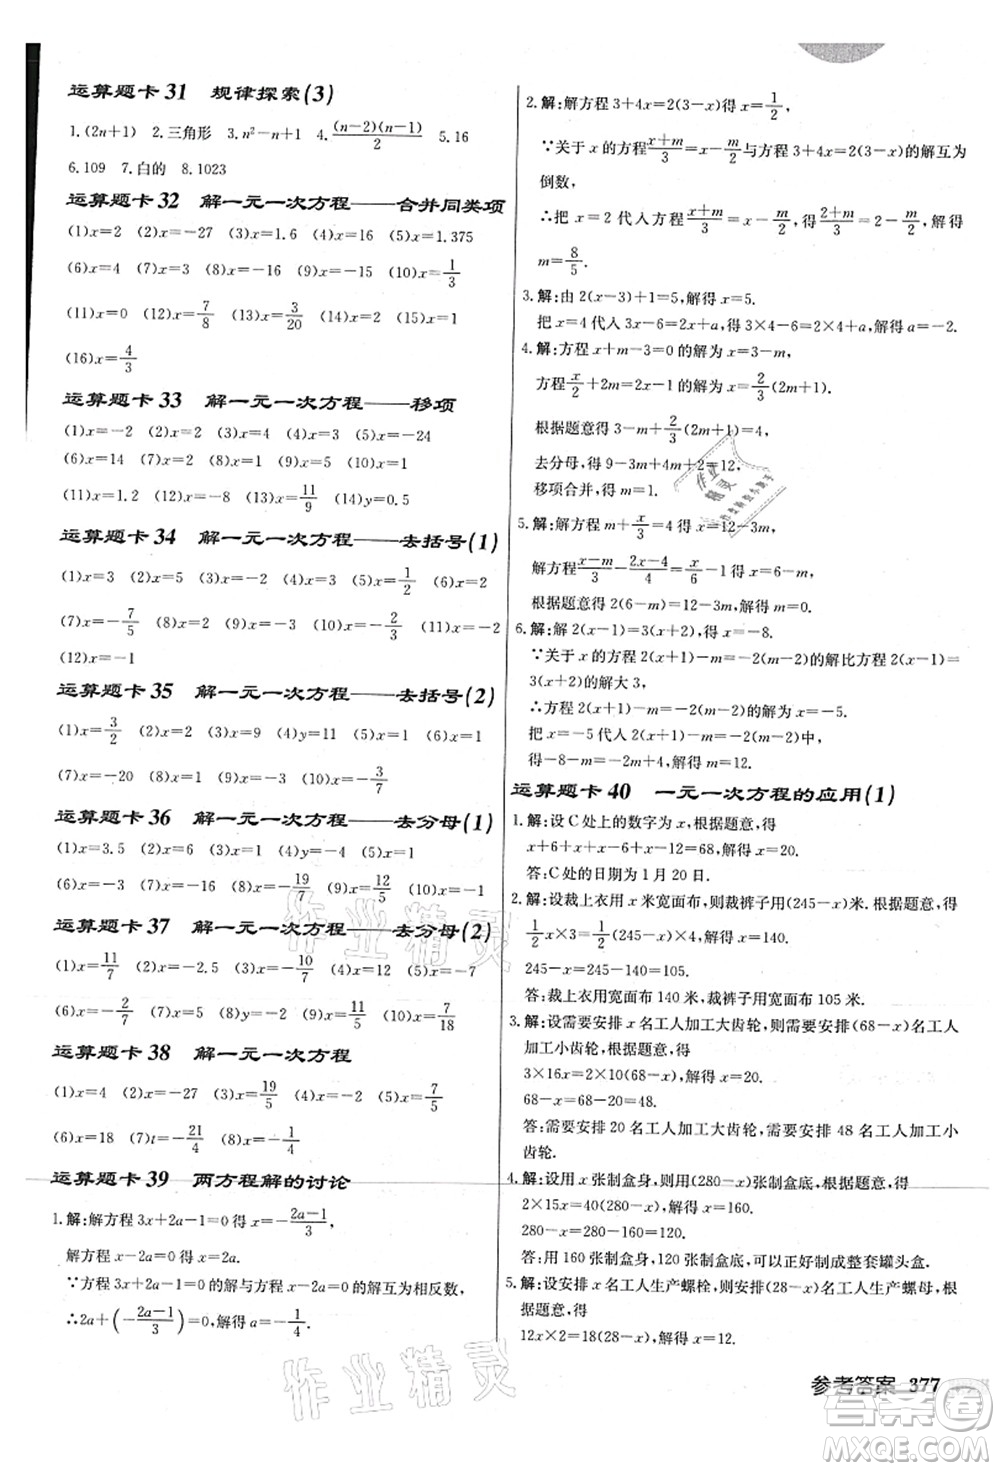 运算题卡 31 规律探索(3)
1.(2n+1) 2.三角形 3.n²−n+1 4.(n−2)(n−1)/2 5.16
6.109 7.白的 8.1023
运算题卡 32 解一元一次方程——合并同类项
(1)x=2 (2)x=−27 (3)x=1.6 (4)x=16 (5)x=1.375
(6)x=4 (7)x=4 (8)x=−16 (9)x=−16 (10)x=1/3
(11)x=0 (12)x=7/8 (13)x=3/20 (14)x=16 (15)x=4
(16)x=4/3
运算题卡 33 解一元一次方程——移项
(1)x=−2 (2)x=4 (3)x=4 (4)x=5 (5)x=−24
(6)x=−14 (7)x=2 (8)x=−1 (9)x=4 (10)x=1
(11)x=1.2 (12)x=−4 (13)x=11/9 (14)y=0.5
运算题卡 34 解一元一次方程——去括号(1)
(1)x=3 (2)x=5 (3)x=−2 (4)x=0 (5)x=1/2 (6)x=2
(7)x=−7/5 (8)x=0 (9)x=−3 (10)x=−2/3 (11)x=−2
(12)x=−1
运算题卡 35 解一元一次方程——去括号(2)
(1)x=3/2 (2)x=2 (3)x=9 (4)x=11 (5)x=1 (6)x=8
(7)x=−20 (8)x=6 (9)x=10 (10)x=−3/7
运算题卡 36 解一元一次方程——去分母(1)
(1)x=3.5 (2)x=6 (3)x=2 (4)x=2 (5)x=1
(6)x=−3 (7)x=1 (8)x=−19/7 (9)x=12/5 (10)x=−1
运算题卡 37 解一元一次方程——去分母(2)
(1)x=11/7 (2)x=−2.5 (3)x=10/7 (4)x=1 (5)x=5
(6)x=−2/7 (7)x=1 (8)x=0 (9)x=11/5 (10)x=7/18
运算题卡 38 解一元一次方程
(1)x=4 (2)x=−27 (3)x=19/5 (4)x=2 (5)x=1
(6)x=18 (7)t=−21/4 (8)x=−1/4
运算题卡 39 两方程解的讨论
1.解:解方程 3x+2a−1=0 得 x=−(2a−1)/3,
解方程 x−2a=0 得 x=2a.
∵方程 3x+2a−1=0 的解与方程 x−2a=0 的解互为相反数,
∴2a+(−(2a−1)/3)=0,解得 a=−1/4.
2.解:解方程 3+4x=2(3−x)得 x=1/2,
∵关于 x 的方程(x+m)/3=x−m/3与方程 3+4x=2(3−x)的解互为
倒数,
∴把 x=2 代入方程(x+m)/3=x−m/3,得(2+m)/3=2−m/3,解得
m=8/5.
3.解:由 2(x−3)+1=5,解得 x=5.
把 x=4 代入 3x−6=2x+a,得 3×4−6=2×4+a,解得 a=−2.
4.解:方程 x+m−3=0 的解为 x=3−m,
方程x/2+2m=x−1 的解为 x=2/3(2m+1).
根据题意得 3−m+2/3(2m+1)=4,
去分母,得 9−3m+4m+2=12,
移项合并,得 m=1.
5.解:解方程 m+x/3=4 得 x=12−3m,
解方程(x−m)/3−(2x−4)/4=x/6−1 得 x=6−m,
根据题意得 2(6−m)=12−3m,解得 m=0.
6.解:解 2(x−1)=3(x+2),得 x=−8.
∵关于 x 的方程 2(x+1)−m=−2(m−2)的解比方程 2(x−1)=
3(x+2)的解大 3,
∴方程 2(x+1)−m=−2(m−2)的解为 x=−5.
把 x=−5 代入 2(x+1)−m=−2(m−2),
得−10+2−m=−2m+4,解得 m=12.
运算题卡 40 一元一次方程的应用(1)
1.解:设 C 处上的数字为 x,根据题意,得
x+6+x+x−6+x−1=68,解得 x=20.
答:C 处的日期为 1 月 20 日.
2.解:设裁上衣用 x 米宽面布,则裁裤子用(245−x)米. 根据题意,得
1/2x×3=1/2(245−x)×4,解得 x=140.
245−x=245−140=105.
答:裁上衣用宽面布 140 米,裁裤子用宽面布 105 米.
3.解:设需要安排 x 名工人加工大齿轮,则安排(68−x)名工人
加工小齿轮,根据题意,得
3×16x=2×10(68−x),解得 x=20.
68−x=68−20=48.
答:需要安排 20 名工人加工大齿轮,安排 48 名工人加工小
齿轮.
4.解:设用 x 张制盒身,则用(280−x)张制盒底,根据题意,得
2×15x=40(280−x),解得 x=160.
280−x=280−160=120.
答:用 160 张制盒身,120 张制盒底,可以正好制成整套罐头盒.
5.解:设安排 x 名工人生产螺栓,则安排(28−x)名工人生产螺母,根
据题意,得
12x×2=18(28−x),解得 x=12.
参考答案 377
作业精灵
作业精灵
答案圈
MXQE.COM